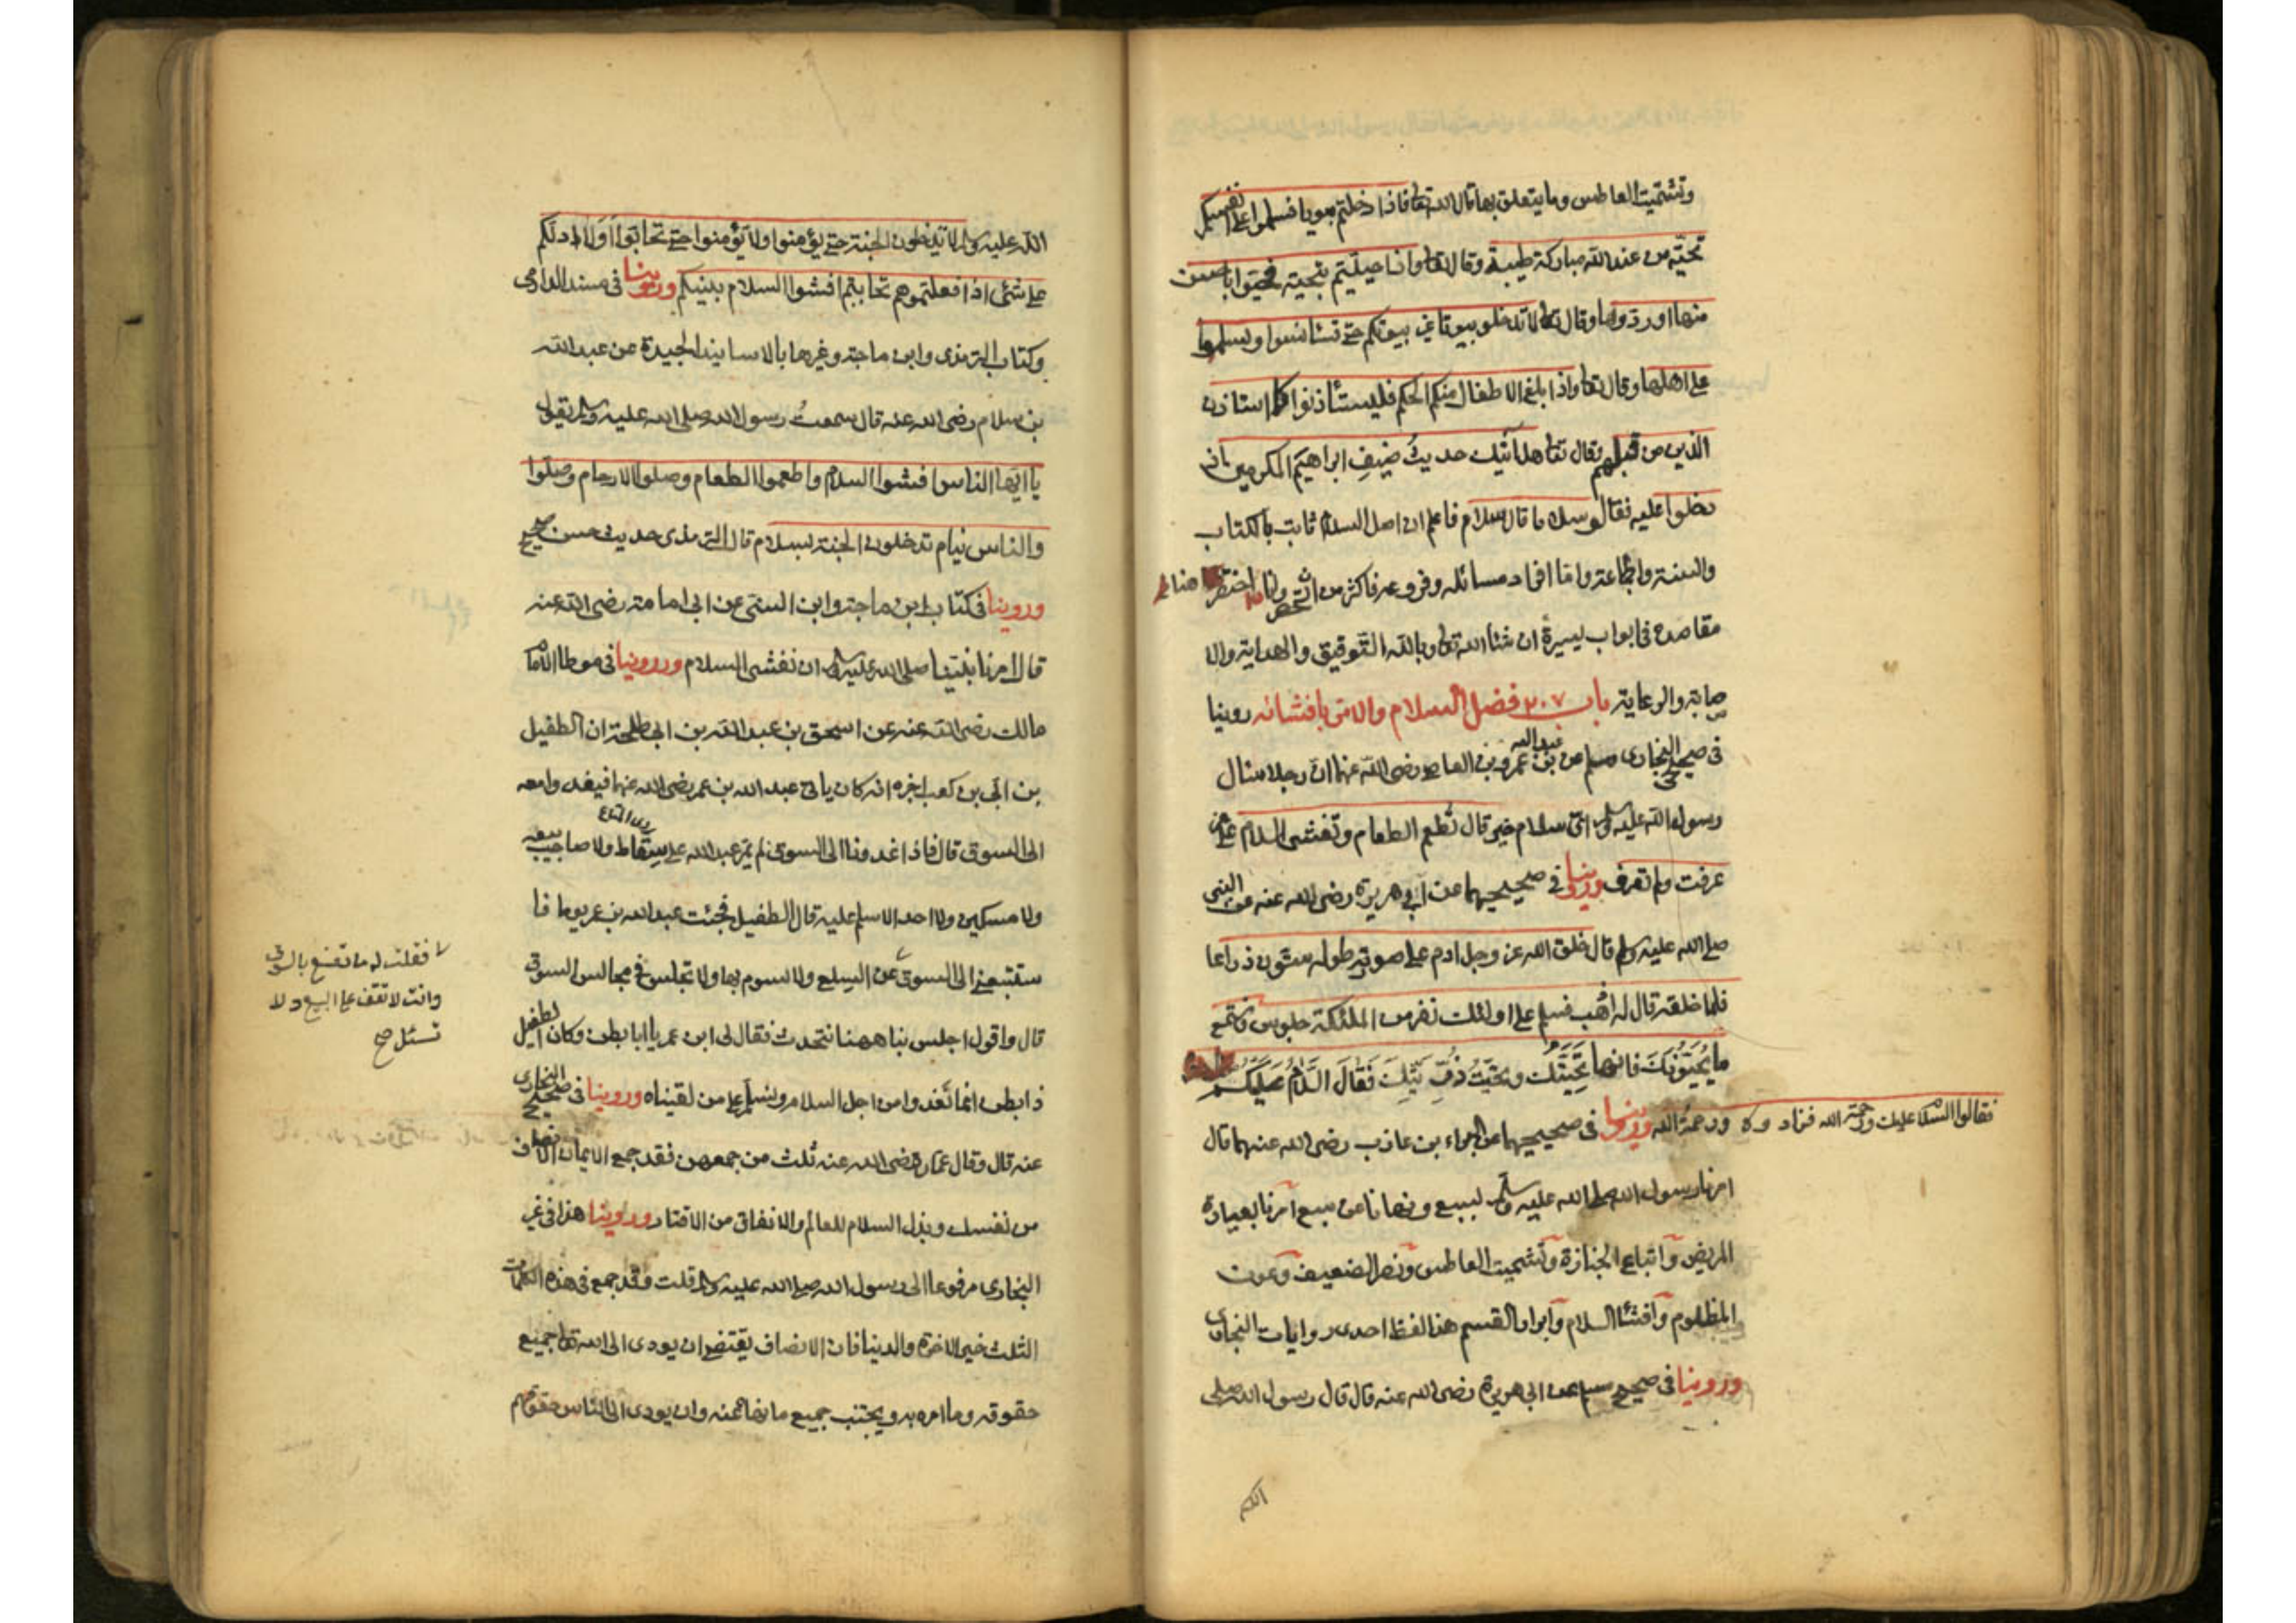 وتشميت العاطس وما يتعلق بها قال الله تعا فاذا دخلتم بيوتا فسلموا على انفسكم
تحية من عند الله مباركة طيبة وقال تعا واذا حييتم بتحية فحيوا باحسن
منها او ردوها وقال تعا لا تدخلو بيوتا غير بيوتكم حتى تستانسوا وتسلموا
على اهلها وقال تعا واذا بلغ الاطفال منكم الحكم فليستأذنوا كما استاذن
الذين من قبلهم وقال تعا هل اتيك حديث ضيف ابراهيم المكرمين اذ
دخلوا عليه فقالو سلاما قال سلام فاعلم ان اصل السلام ثابت بالكتاب
والسنة والاجماعة واما افراد مسائله وفروعه فاكثر من ان تحصر وانا اختصر هنا
مقاصده في ابواب يسيرة ان شاء الله تعا وبالله التوفيق والهداية والا
صابة والرعاية باب ٢٠٧ فضل السلام والامر بافشائه روينا
في صحيحي البخارى ومسلم عن عبد الله بن عمرو بن العاص رضى الله عنهما ان رجلا سئال
رسول الله عليه وسلم اى سلام خير قال تطعم الطعام وتفشى السلام على من
عرفت ولم تعرف وروينا في صحيحيهما عن ابي هريرة رضى الله عنه عن النبى
صلى الله عليه وسلم قال خلق الله عز وجل ادم على صورته طوله ستون ذراعا
فلما خلقه قال له اذهب فسلم على اولئك نفر من الملئكة جلوس فاستمع
ما يحيونك فانها تحيتك وتحية ذريتك فقال السلام عليكم
فقالوا السلام عليك ورحمة الله فزاد وه ورحمة الله وروينا في صحيحيهما عن البراء بن عازب رضى الله عنهما قال
امرنا رسول الله صلى الله عليه وسلم لسبع ونهانا عن سبع امرنا بعيادة
المريض واتباع الجنازة وتشميت العاطس ونصر الضعيف وعون
المظلوم وافشاء السلام وابرار القسم هذا لفظ احدى روايات البخارى
وروينا في صحيح مسلم عن ابي هريرة رضى الله عنه قال قال رسول الله صلى
الله عليه وسلم لا تدخلون الجنة حتى تؤمنوا ولا تؤمنوا حتى تحابوا اولا ادلكم
على شئى اذا فعلتموهم تحاببتم افشوا السلام بينكم وروينا في مسند الدارمى
وكتاب الترمذى وابن ماجة وغيرها بالاسانيد الجيدة عن عبد الله
بن سلام رضى الله عنه قال سمعت رسول الله صلى الله عليه وسلم يقول
يا ايها الناس افشوا السلام واطعموا الطعام وصلوا الارحام وصلوا
والناس نيام تدخلون الجنة بسلام قال الترمذى حديث حسن صحيح
وروينا في كتاب ابن ماجة وابن السنى عن ابي امامة رضى الله عنه
قال امرنا نبينا صلى الله عليه وسلم ان نفشى السلام وروينا في موطا الامام
مالك رضى الله عنه عن اسحق بن عبد الله بن ابي طلحة ان الطفيل
بن ابي بن كعب اخبره انه كان ياتي عبد الله بن عمر رضى الله عنهما فيغدوا معه
الى السوق قال فاذا غدونا الى السوق لم يمر عبد الله على سقاط ولا صاحب بيعه
ولا مسكين ولا احد الا سلم عليه قال الطفيل فجئت عبد الله بن عمر يوما فا
ستتبعنى الى السوق عن السلع ولا تسوم بها ولا تجلس في مجالس السوق
فقلت له ما تصنع بالسوق
وانت لا تقف على البيع ولا
تسئل صح
قال واقول اجلس بنا ههنا نتحدث فقال لى ابن عمر يا ابا بطن وكان الطفيل
ذا بطن انما نغدوا من اجل السلام ونسلم على من لقيناه وروينا في صحيح البخارى
عنه قال وقال عمار رضى الله عنه ثلث من جمعهن فقد جمع الايمان الانصاف
من نفسك وبذل السلام للعالم والانفاق من الاقتار وروينا هذا في غير
البخارى مرفوعا الى رسول الله صلى الله عليه وسلم قلت وقد جمع في هذه الكلمات
الثلث خير الاخرة والدنيا فان الانصاف يقتضى ان يودى الى الله تعا جميع
حقوقه وما امره به ويجتنب جميع ما نهاه عنه وان يودى الى الناس حقوقهم